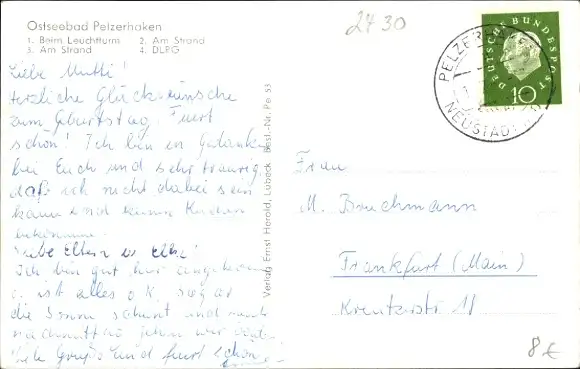 Ostseebad Pelzerhaken
1. Beim Leuchtturm 2. Am Strand
3. Am Strand 4. DLRG
Liebe Mutti!
Herzliche Glückwünsche
zum Geburtstag. Feiert
schön! Ich bin in Gedanken
bei Euch und sehr traurig,
daß ich nicht dabei sein
kann und keinen Kuchen
bekomme.
Liebe Eltern
Ich bin gut hier angekommen
ist alles o.k. sogar
die Sonne scheint und
nachmittag gehen wir
Viele Grüße und feiert schön
Verlag Ernst Herold, Lübeck Best.-Nr. Pe 53
2430
PELZERHAKEN
NEUSTADT
DEUTSCHE BUNDESPOST
10
Frau
M. Bruchmann
Frankfurt (Main)
Kreuzerstr 11
8€